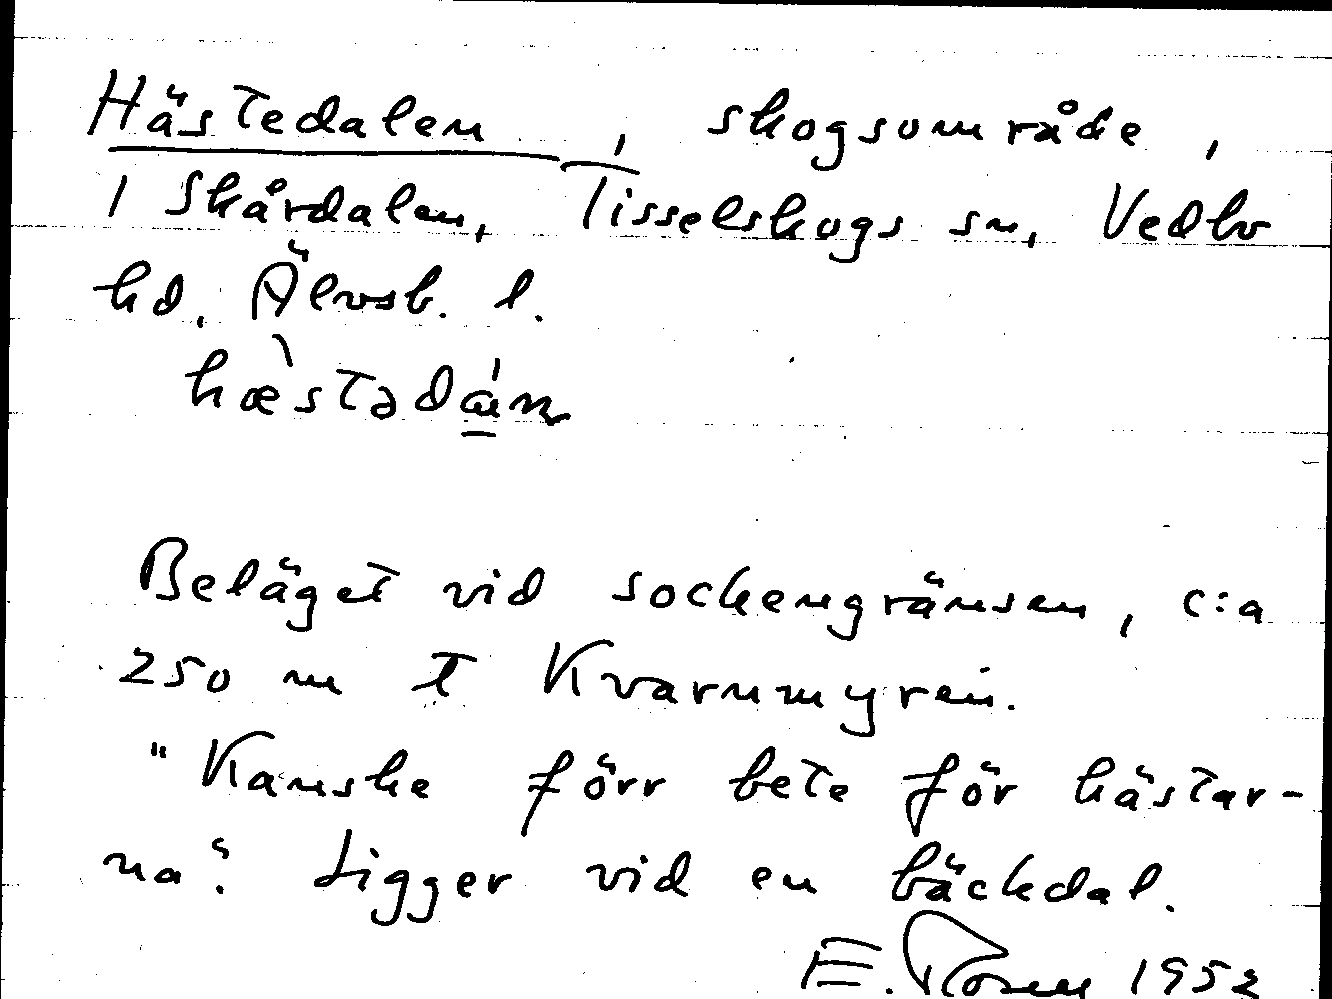 Hästedalen, skogsområde,
1 Skårdalen, Tisselskogs sn, Vedbo
hd, Älvsb. l.
hæ̀stadán
Beläget vid sockengränsen, c:a
250 m t Kvarnmyren.
"Kanske förr bete för hästar-
na". Ligger vid en bäckdal.
E. Rosen 1952